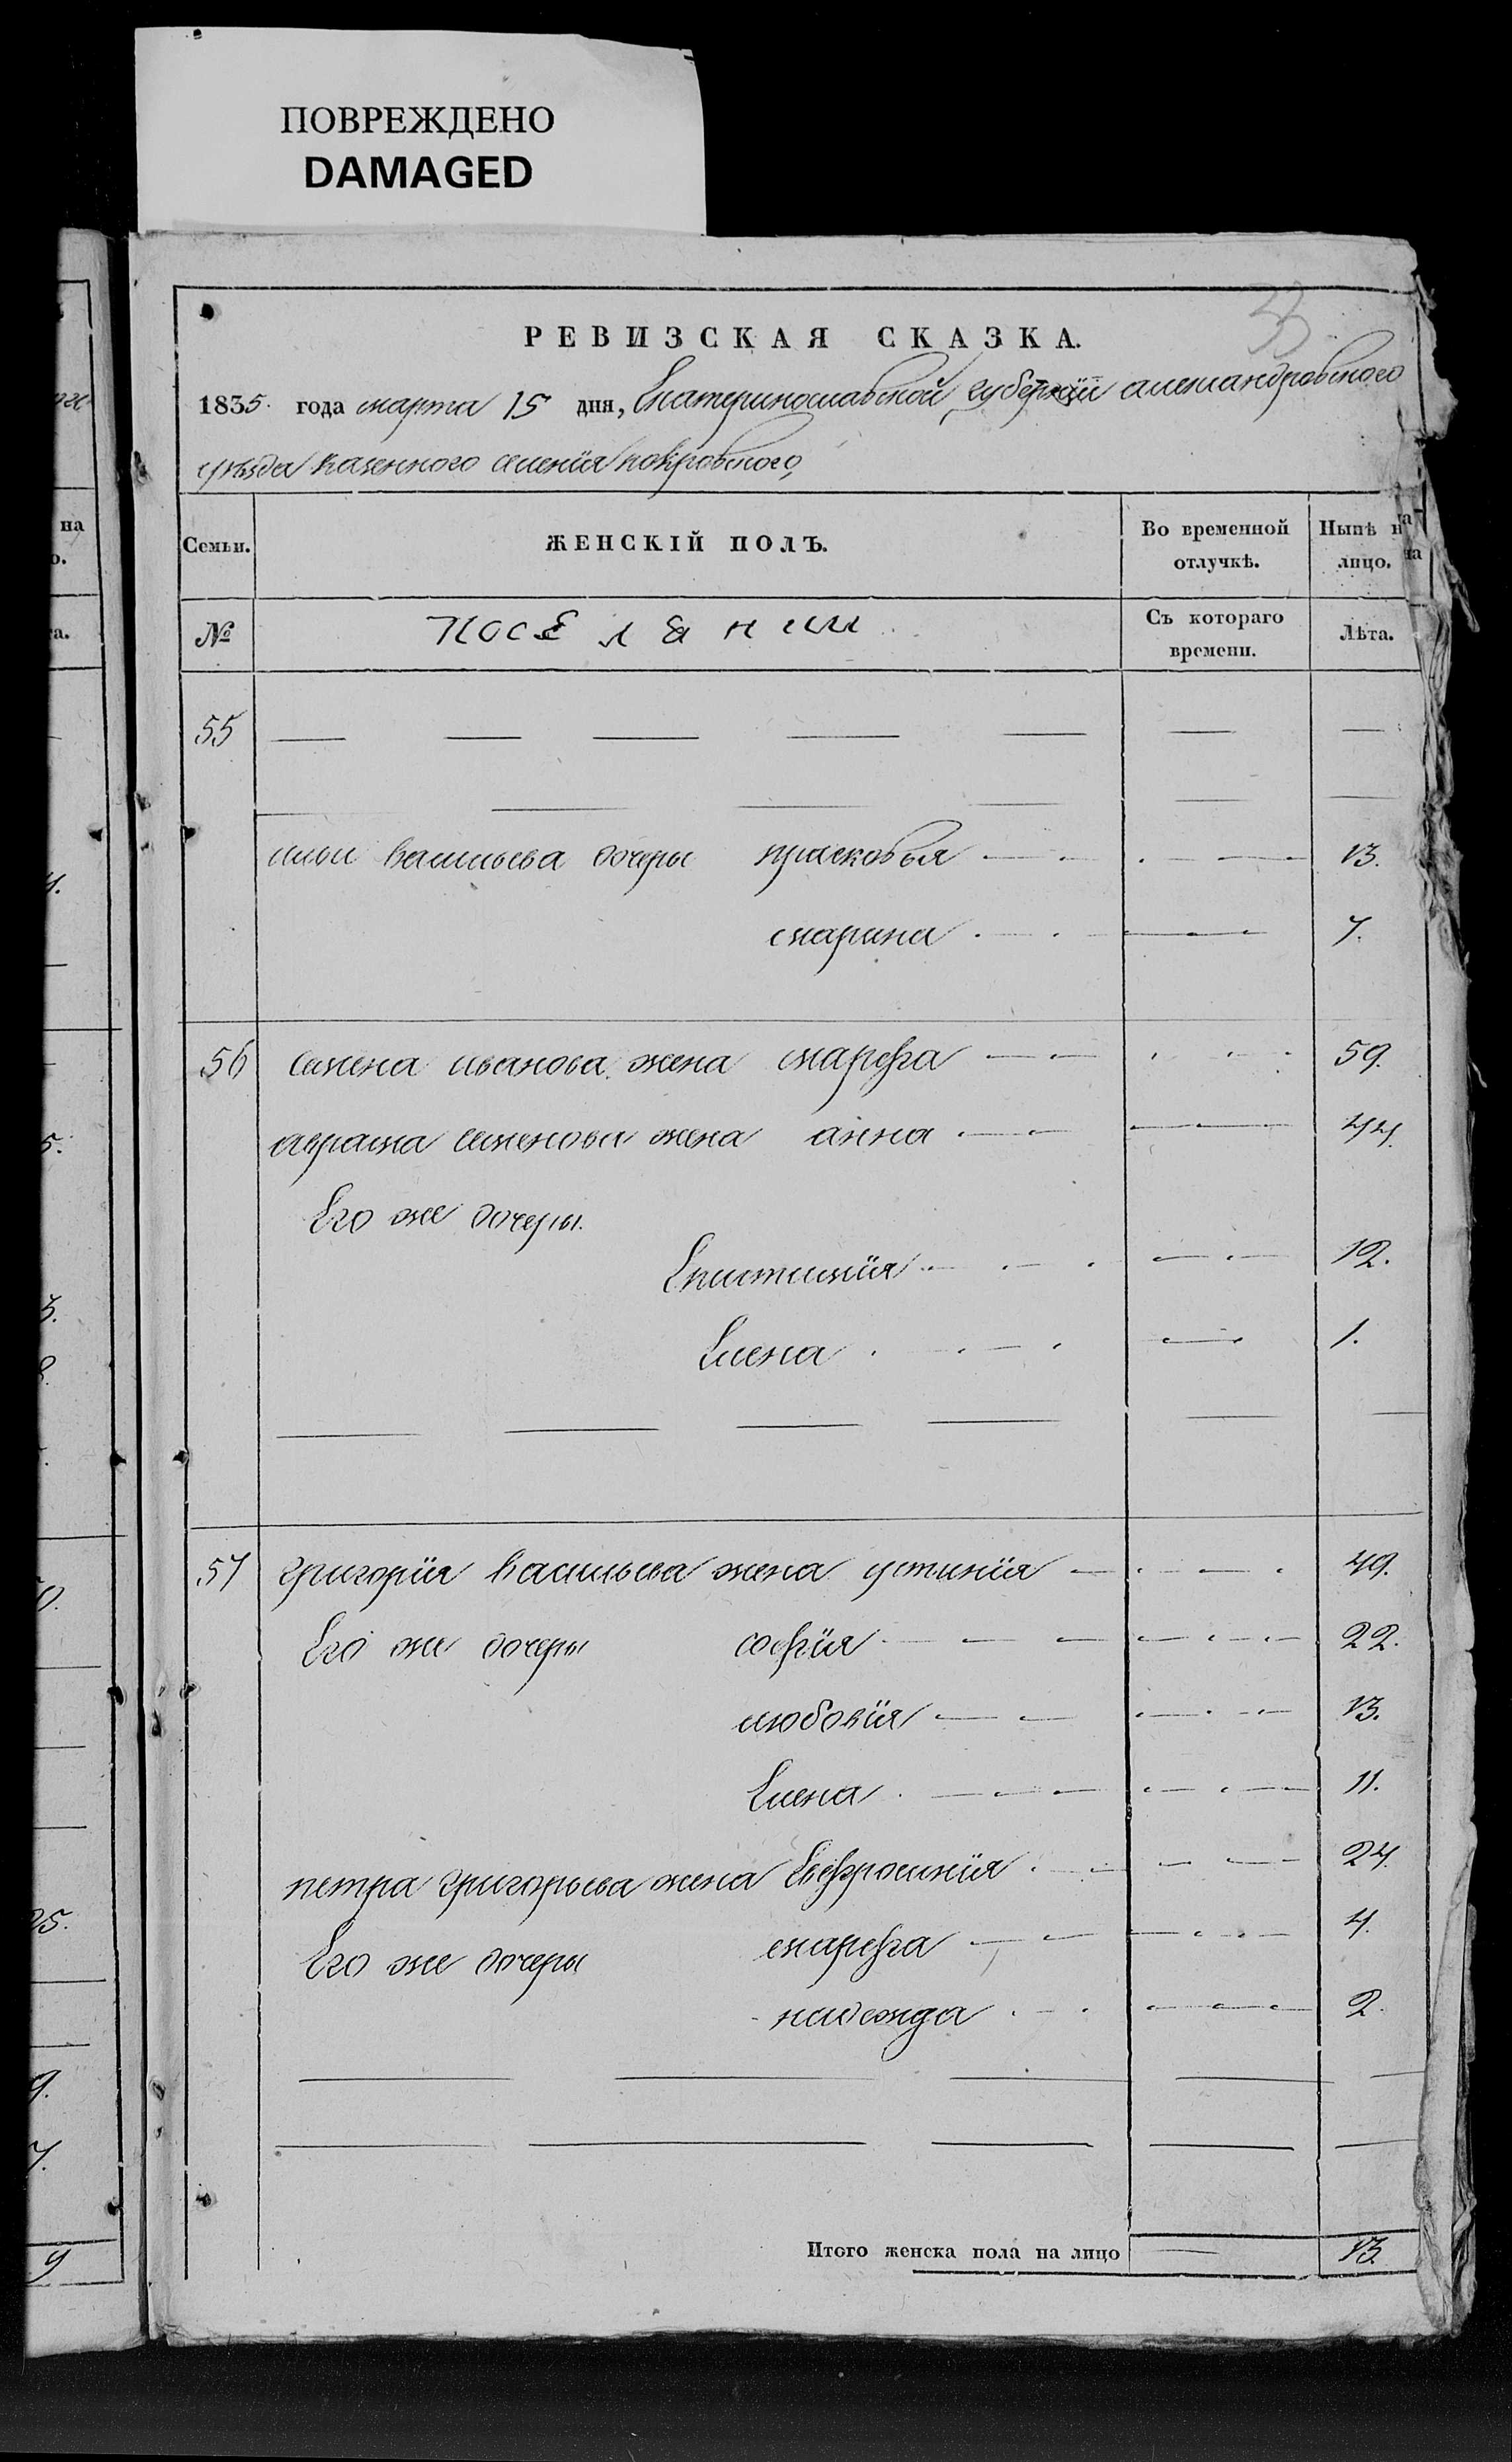 ПОВРЕЖДЕНО
DAMAGED
33
РЕВИЗСКАЯ СКАЗКА.
1835. года марта 15 дня, Екатеринославской губернїи александровского
уѣзда казенного селенїя покровского
Семьи. ЖЕНСКІЙ ПОЛЪ. Во временной отлучкѣ. Нынѣ на лицо.
№ поселянки Съ котораго времени. Лѣта.
55 — — — — — — —
— — — — — —
ильи васильева дочеры прасковья — — 13.
марина — — 7.
56 семена иванова жена марфа — — 59.
аврама семенова жена анна — — 44.
Его же дочеры.
Епистимїя — — 12.
Елена — — 1.
— — — — — —
57 григорїя васильева жена устинїя — — 49.
Его же дочеры софїя — — 22.
любовїя — — 13.
Елена — — 11.
петра григорьева жена Евфросинїя — — 24.
Его же дочеры марфа — — 4.
надежда — — 2.
— — — — —
— — — — —
Итого женска пола на лицо — 13.